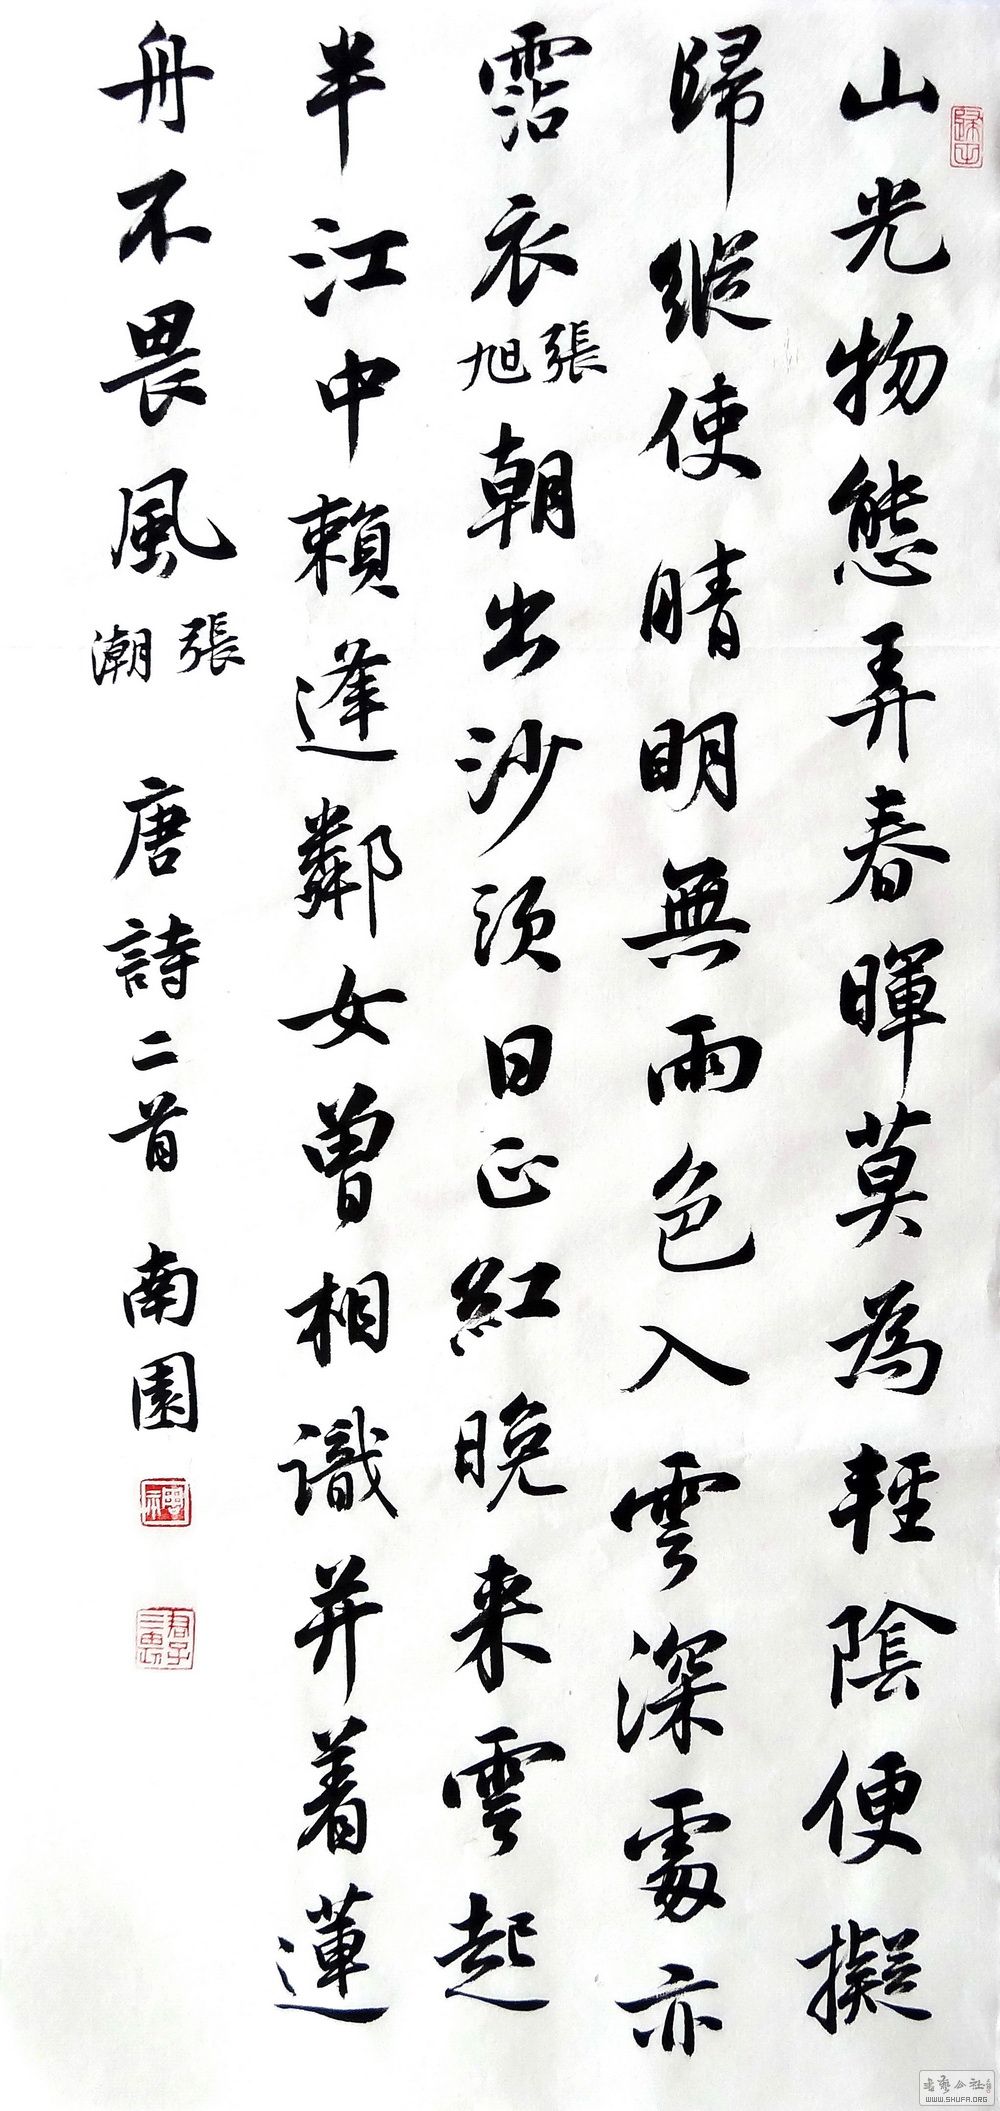 山光物態弄春暉莫為輕陰便擬
歸縱使晴明無雨色入雲深處亦
霑衣張旭朝出沙頭日正紅晚来雲起
半江中賴逢鄰女曾相識并着蓮
舟不畏風張潮 唐詩二首 南園
WWW.SHUFA.ORG